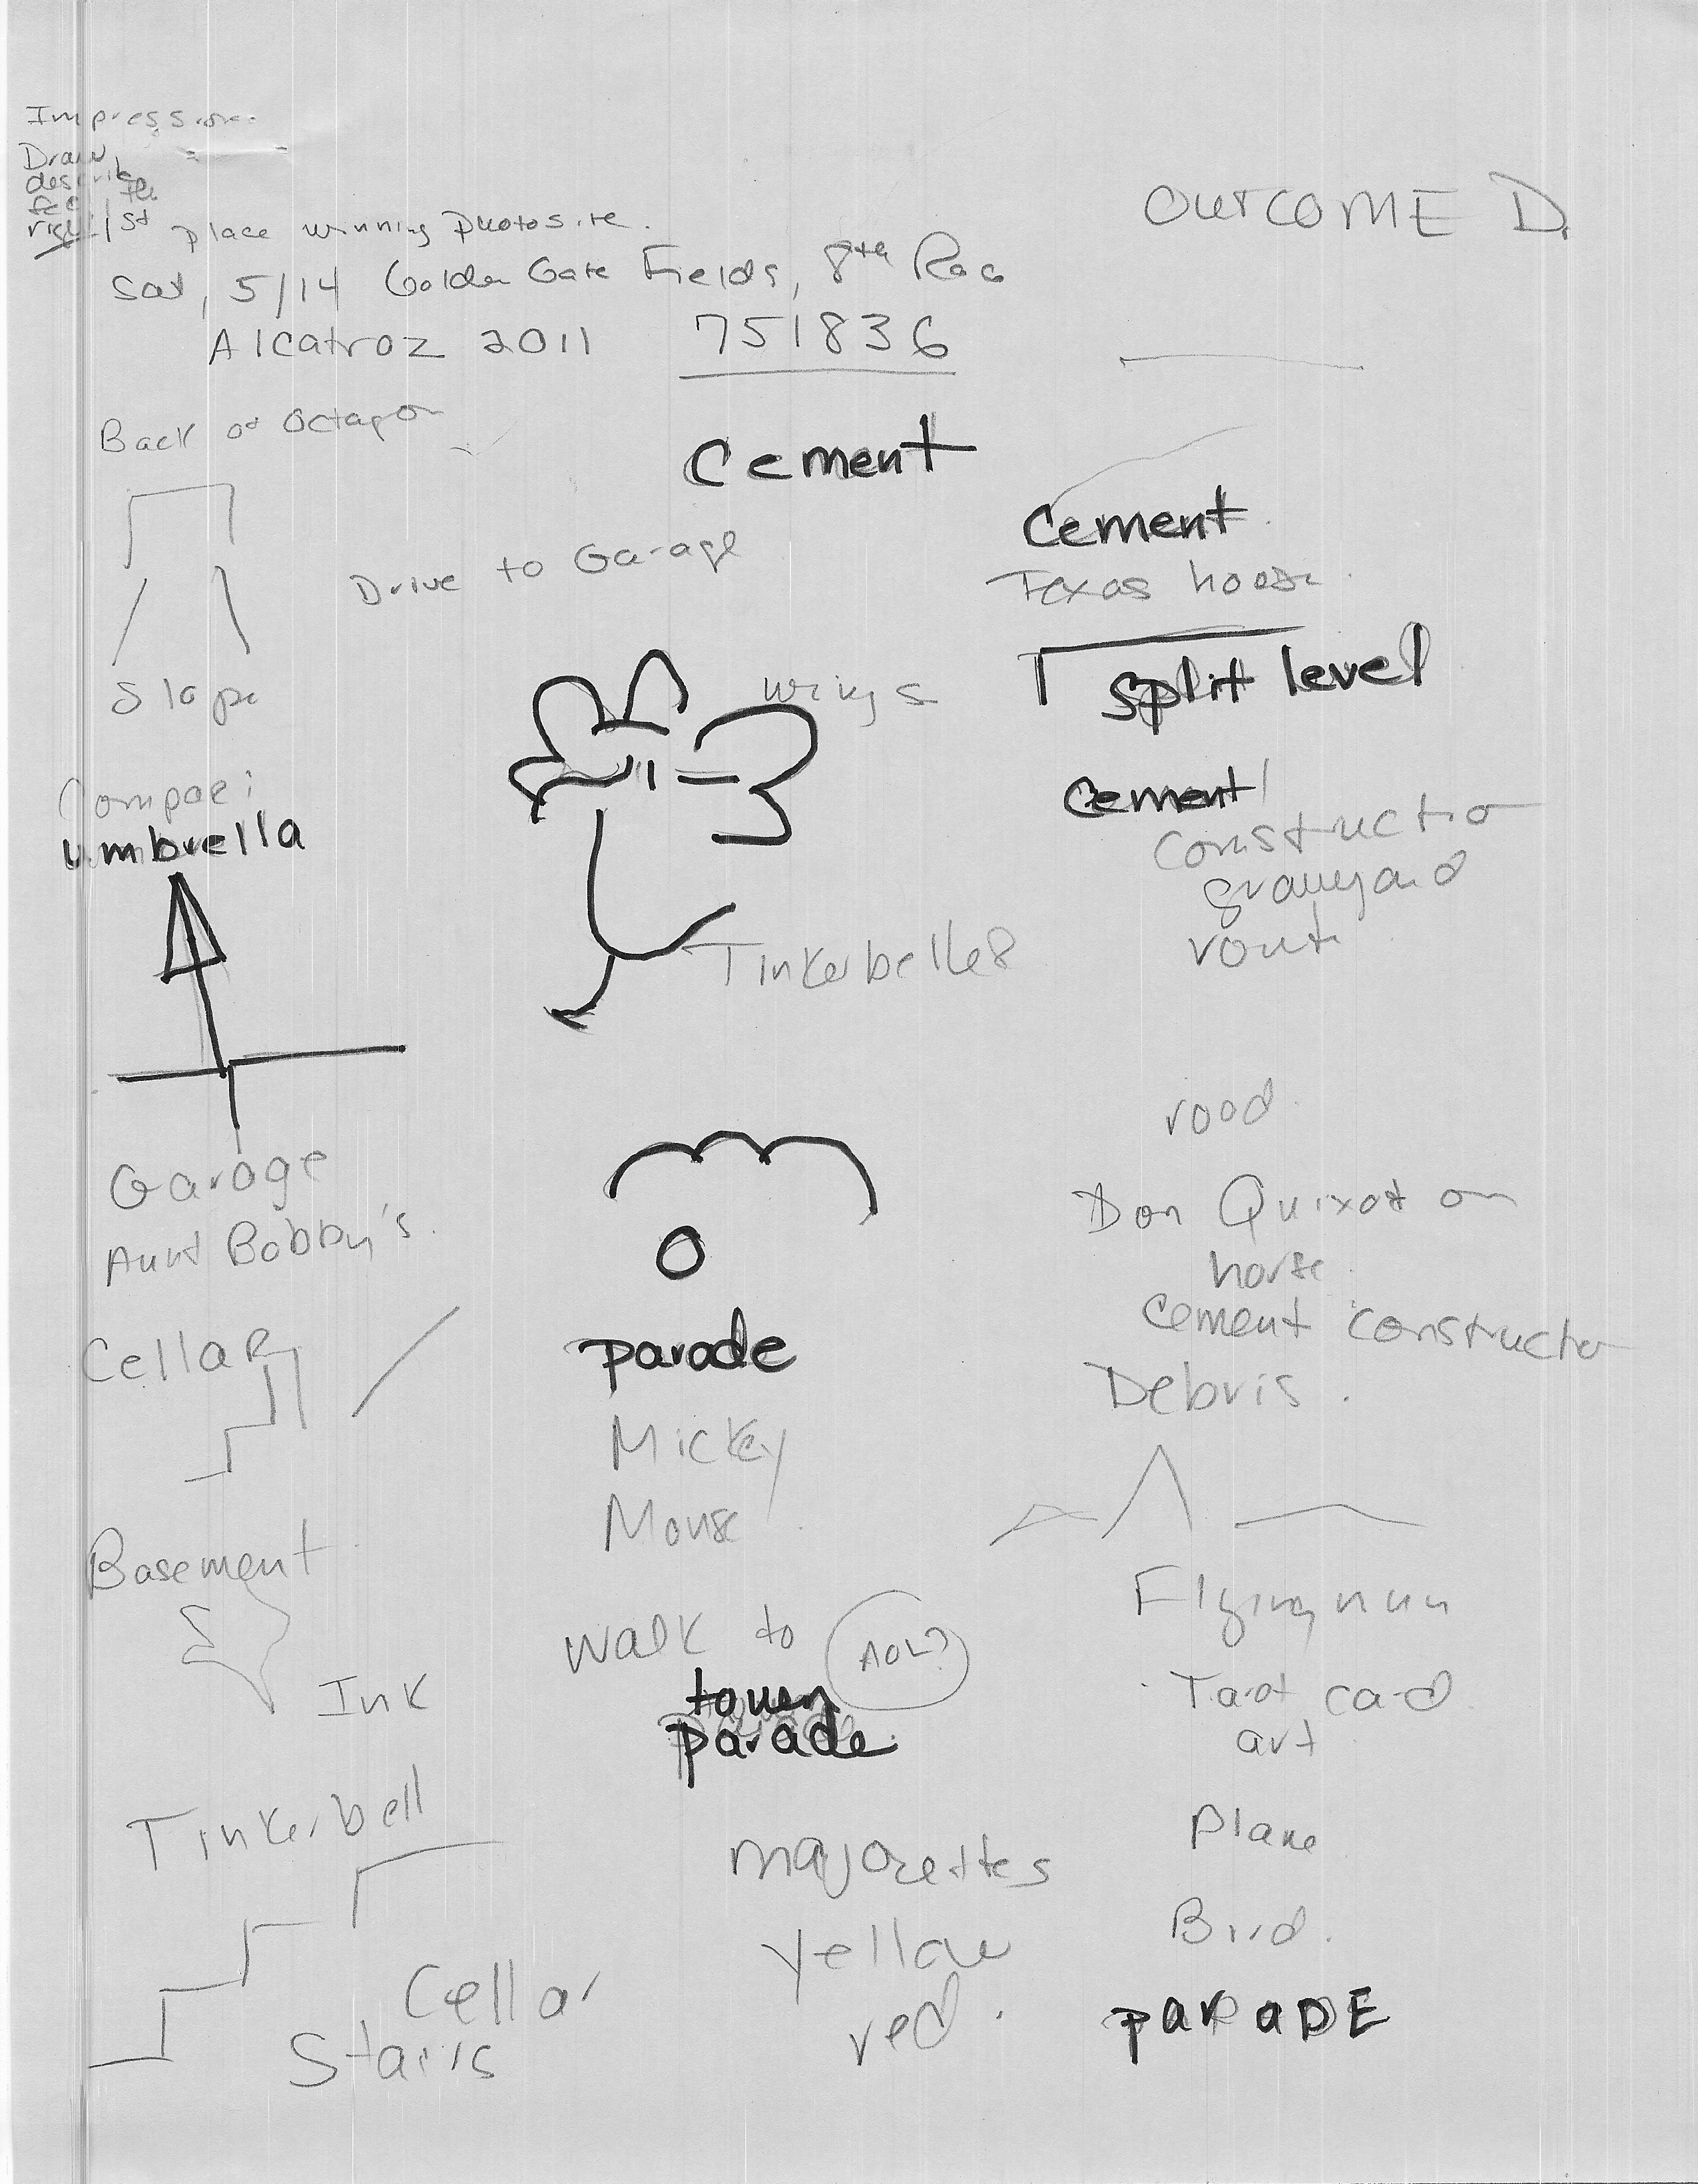 Impression
Draw,
describe
feel the
right 1st place winning photosite.
Sat, 5/14 Golden Gate Fields, 8th Rac
Alcatraz 2011 751836
OUTCOME D.
Back of Octagon
Slope
Compare:
umbrella
Garage
Aunt Bobby's.
CellaR
Basement
Ink
Tinkerbell
Cellar
Stairs
Cement
Drive to Garage
wings
Tinkerbelles
parade
Mickey
Mouse
walk to
AOL?
town
parade
majorettes
yellow
red.
Cement
Texas house
split level
cement/
constructio
graveyard
route
road.
Don Quixot on
horse
Cement constructo
Debris.
Flying nun
Tarot card
art
Plane
Bird.
PARADE